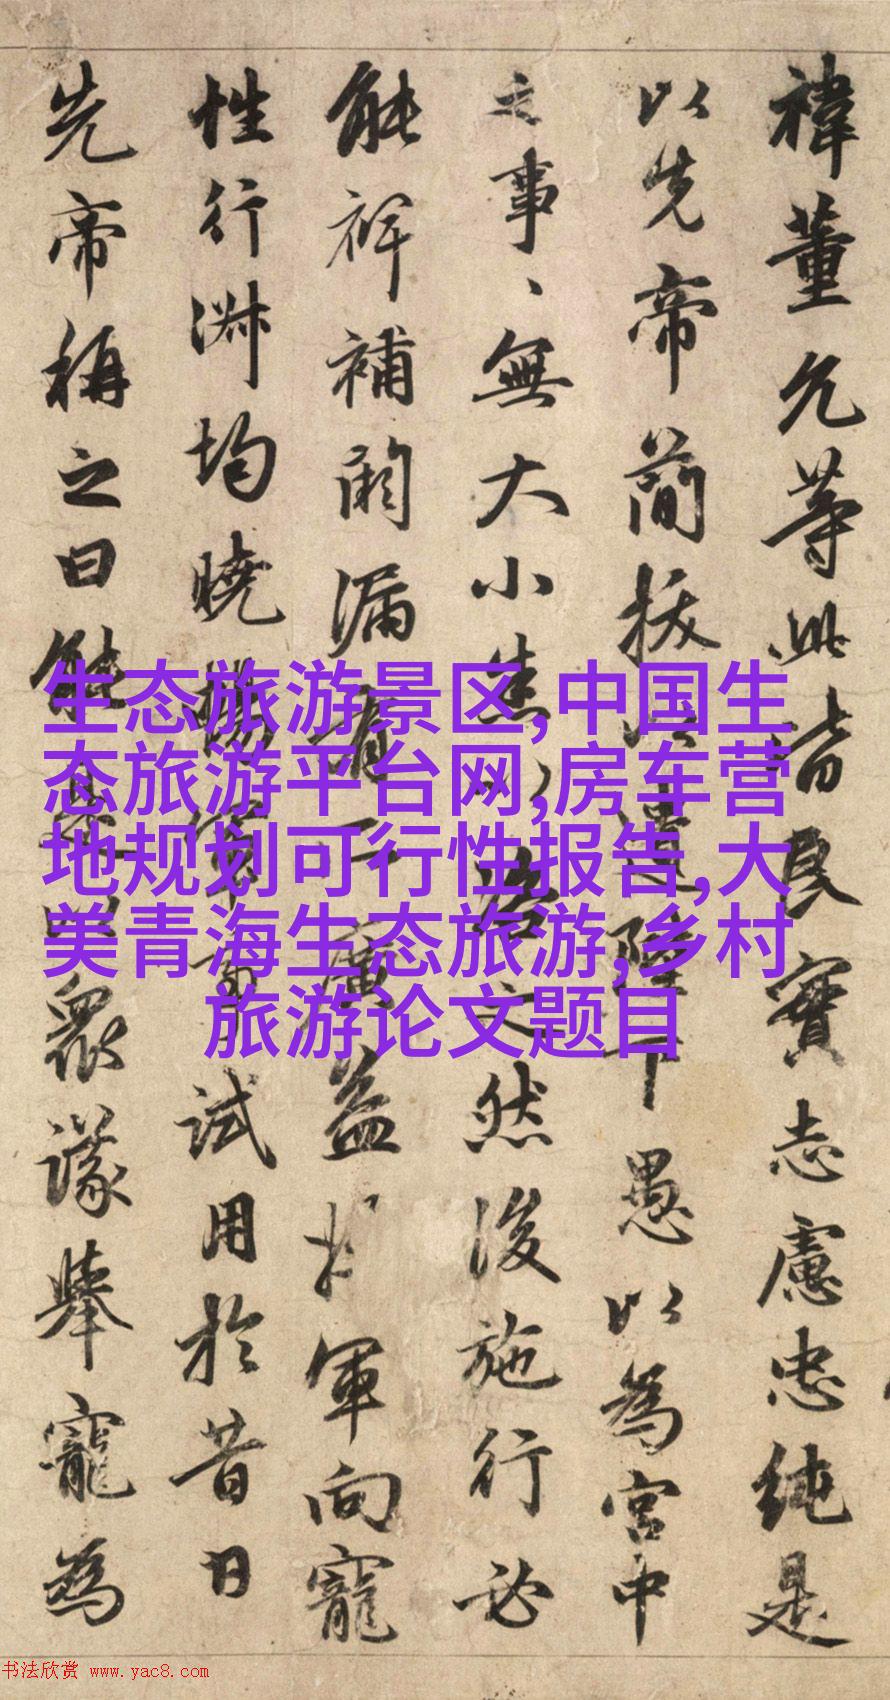 禕董允等此皆良實志慮忠純是
以先帝簡拔以遺陛下愚以為宮中
之事、無大小悉以咨之然後施行必
能裨補闕漏有所廣益將軍向寵
性行淑均曉暢軍事試用於昔日
先帝稱之曰能是以衆議舉寵為
生态旅游景区,中国生
态旅游平台网,房车营
地规划可行性报告,大
美青海生态旅游,乡村
旅游论文题目
书法欣赏 www.yac8.com